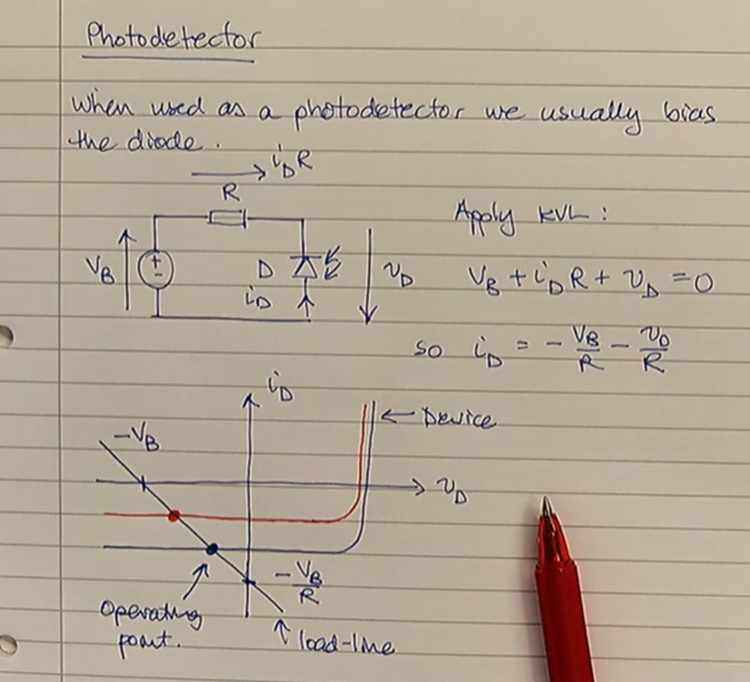 Photodetector
When used as a photodetector we usually bias
the diode.
i_D R
R
V_B
+
-
D
i_D
v_D
Apply KVL:
V_B + i_D R + v_D = 0
so i_D = - V_B/R - v_D/R
i_D
← Device
-V_B
v_D
- V_B/R
Operating
point.
↑ load-line